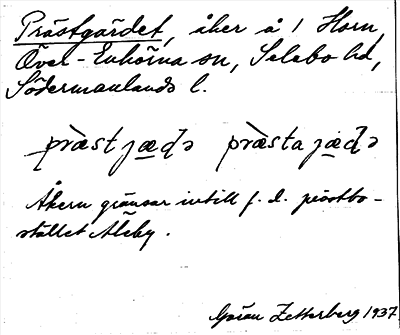 Prästgärdet, åker å 1 Horn,
Över-Enhörna sn, Selebo hd,
Södermanlands l.
præstjæḍə præstajæḍə
Åkern gränsar intill f. d. prästbo-
stället Åleby.
Göran Zetterberg 1937